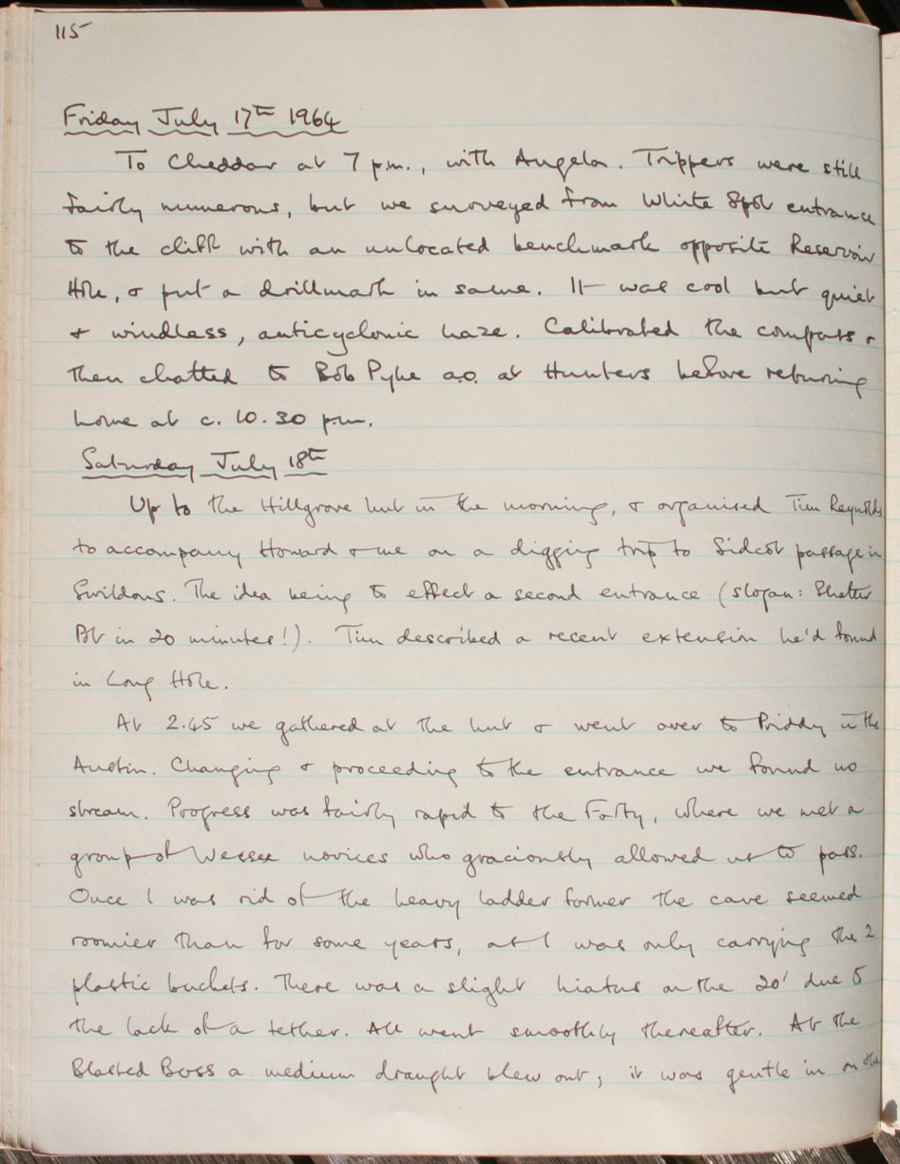 115
Friday July 17th 1964
To Cheddar at 7 p.m., with Angela. Trippers were still
fairly numerous, but we surveyed from White Spot entrance
to the cliff with an unlocated benchmark opposite Reservoir
Hole, & put a drillmark in same. It was cool but quiet
& windless, anticyclonic haze. Calibrated the compass &
then chatted to Bob Pyke a.o. at Hunters before returning
home at c. 10.30 p.m.
Saturday July 18th
Up to the Hillgrove hut in the morning, & organised Tim Reynolds
to accompany Howard & me on a digging trip to Sidcot passage in
Swildons. The idea being to effect a second entrance (slogan: Shatter
Pot in 20 minutes!). Tim described a recent extension he'd found
in Long Hole.
At 2.45 we gathered at the hut & went over to Priddy in the
Austin. Changing & proceeding to the entrance we found no
stream. Progress was fairly rapid to the Forty, where we met a
group of Wessex novices who graciously allowed us to pass.
Once I was rid of the heavy ladder former the cave seemed
roomier than for some years, as I was only carrying the 2
plastic buckets. There was a slight hiatus on the 20' due to
the lack of a tether. All went smoothly thereafter. At the
Blasted Boss a medium draught blew out; it was gentle in on the